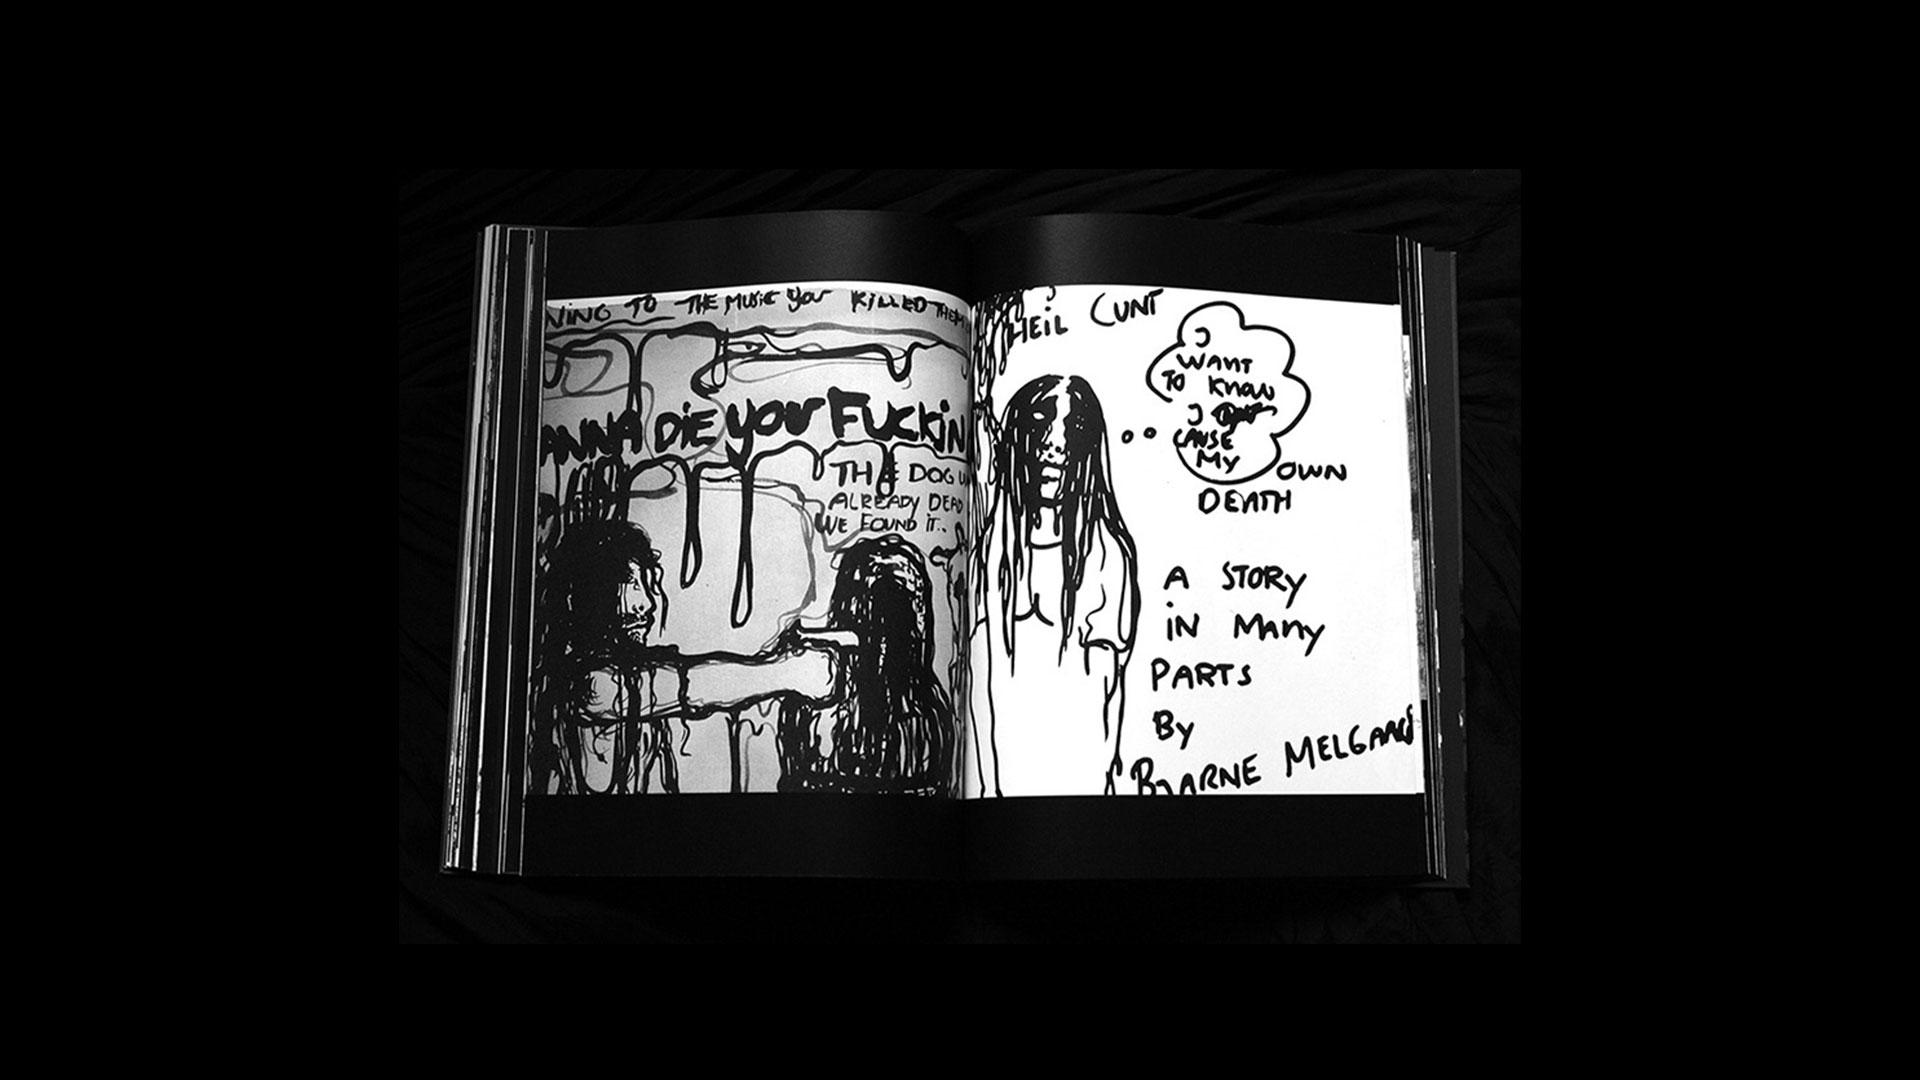 NING TO THE MUSIC YOU KILLED THEM
ANNA DIE YOU FUCKIN
THE DOG W
ALREADY DEAD
WE FOUND IT..
HEIL CUNT
I
WANT
TO KNOW
I
CAUSE
MY OWN
DEATH
A STORY
IN MANY
PARTS
By
BJARNE MELGAARD